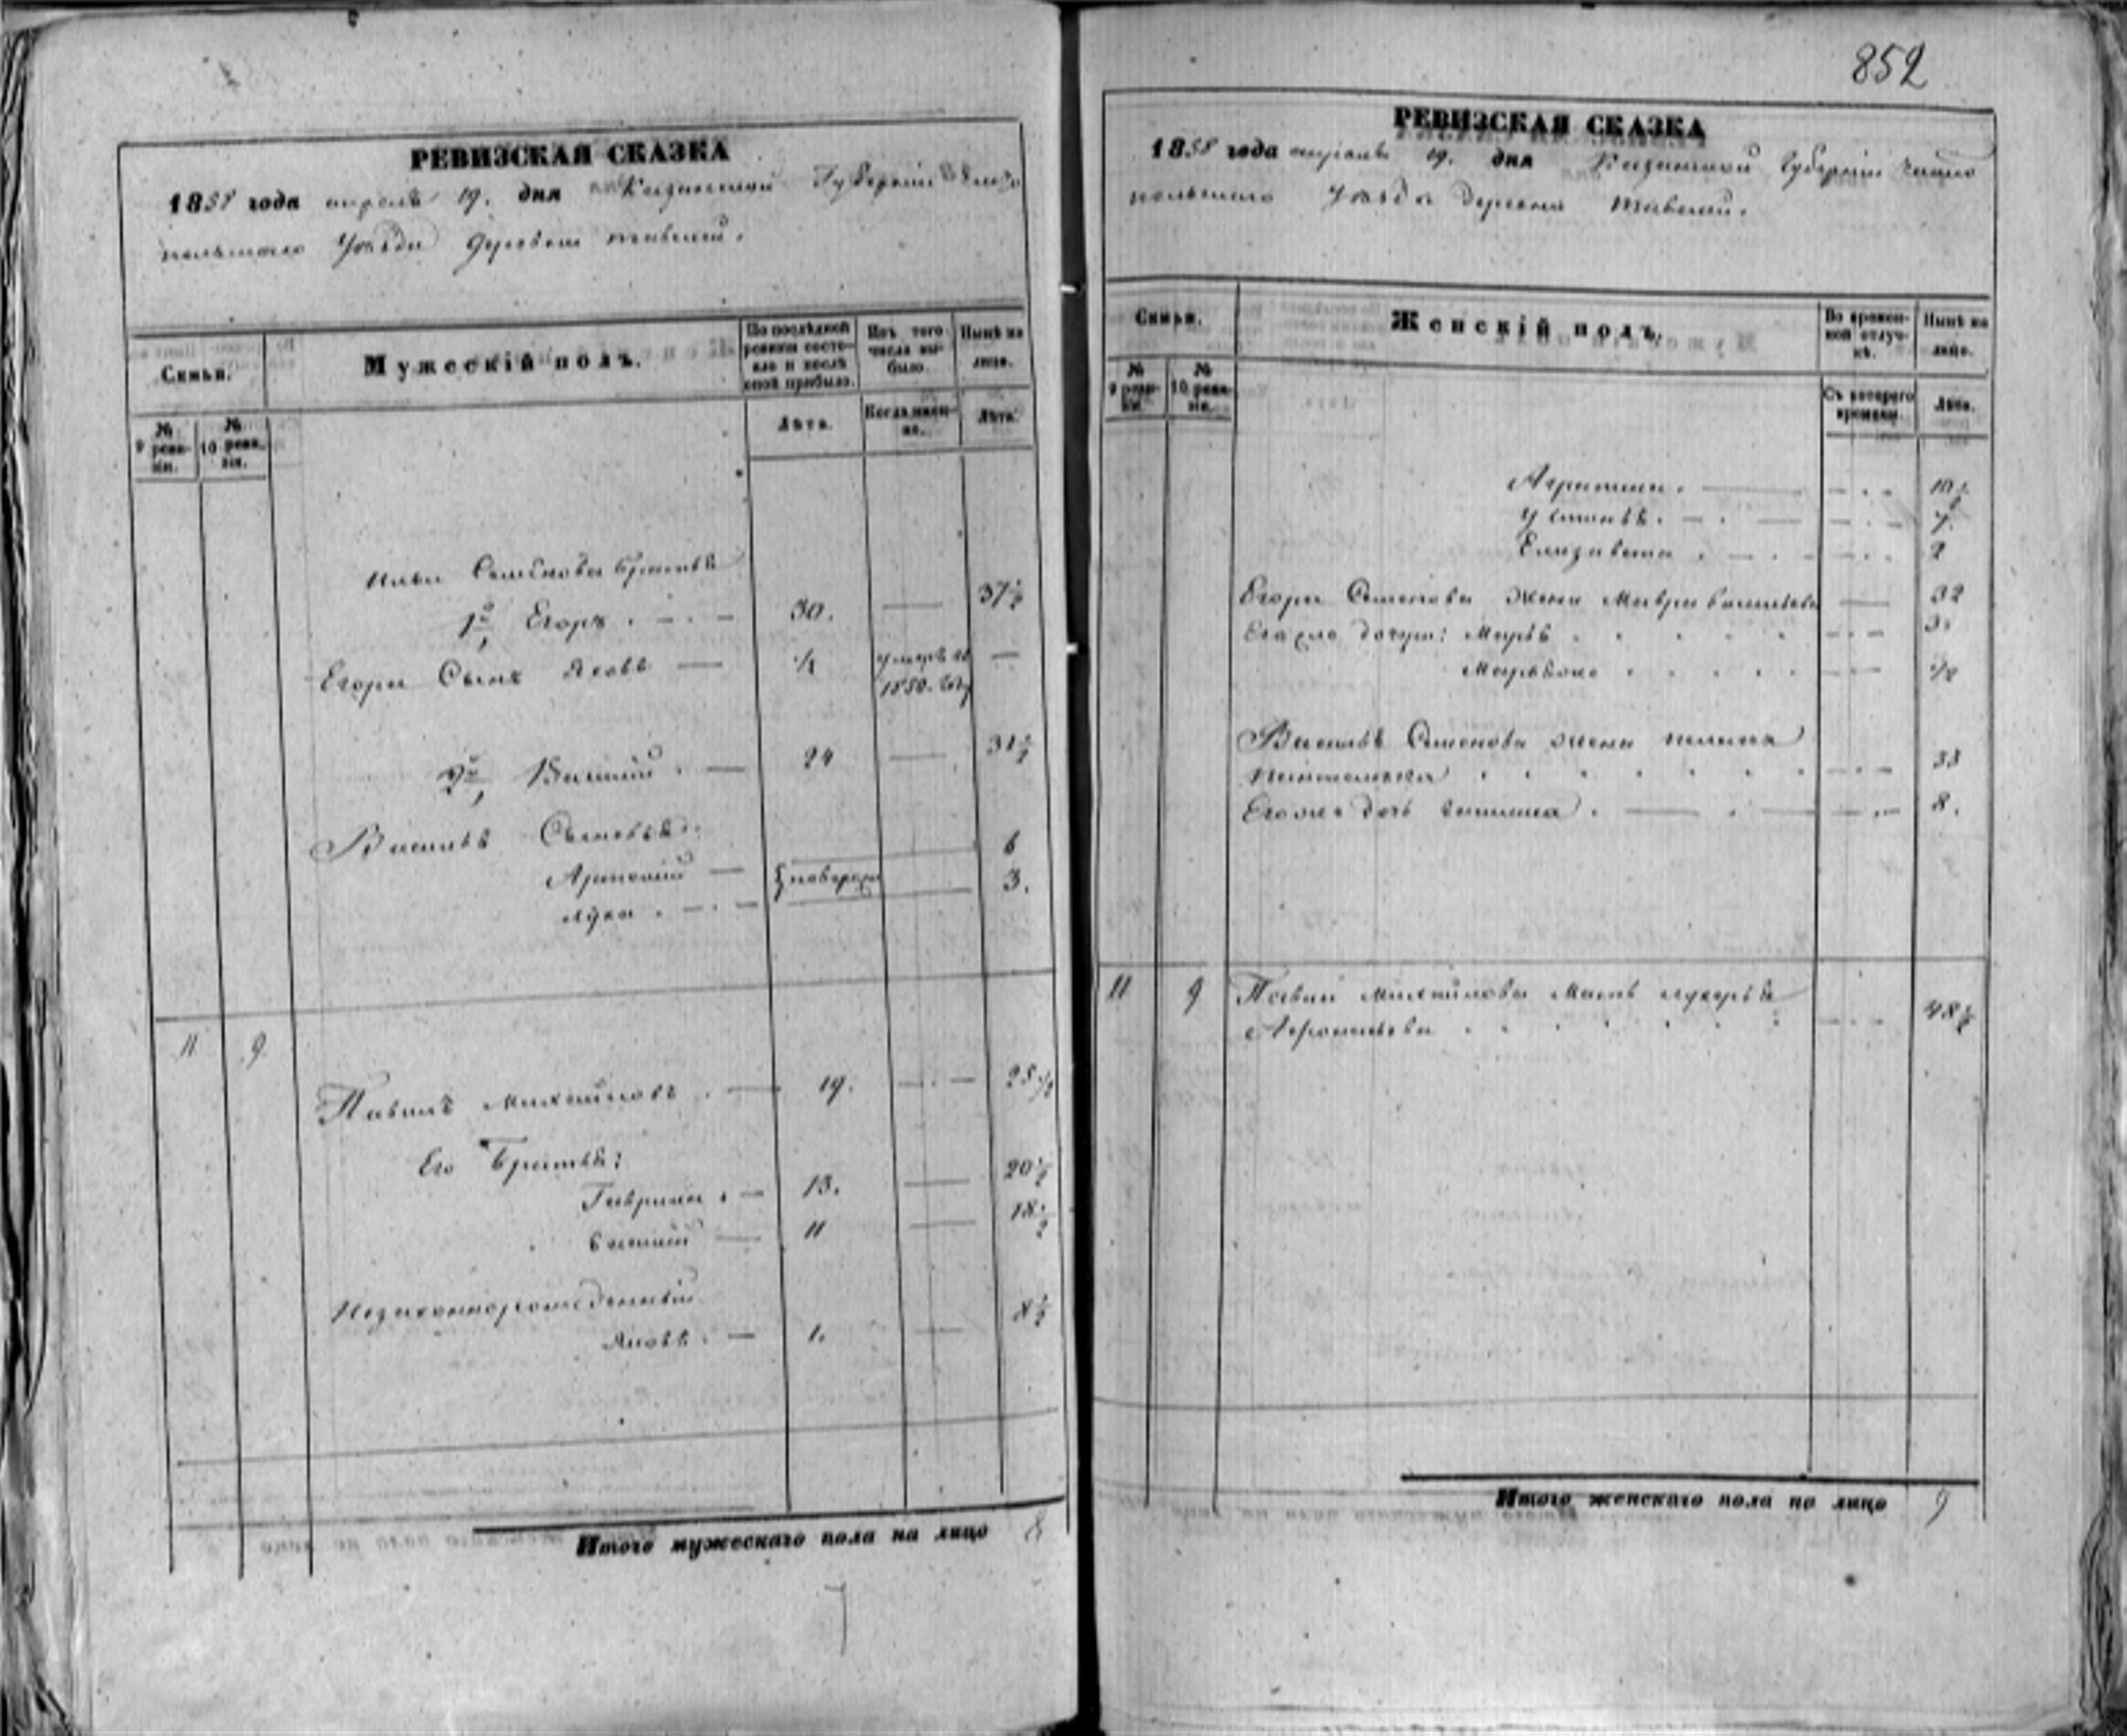 РЕВИЗСКАЯ СКАЗКА
1858 года апреля 19. дня Казанской Губернии Чисто
польскаго Уезда деревни
Семьи.
Мужескій полъ.
По послѣдней ревизіи состояло и послѣ оной прибыло.
Изъ того числа выбыло.
Нынѣ на лицо.
№ 9 ревизіи.
№ 10 ревизіи.
Лѣта.
Когда именно.
Лѣта.
Ильи Семенова братья
1й Егоръ . 30. 37½
Егора Сынъ Яковъ ½ умеръ въ 1850. году
2й Василий . 24 31½
Василья Сыновья:
6
Лука . новорож 3.
11 9
Павелъ Михайловъ . 19. 25½
Его Братья:
Гаврила . 13. 20½
Василий 11 18½
Незаконнорожденный
Яковъ . 1. 8½
Итого мужескаго пола на лицо 8
7
852
РЕВИЗСКАЯ СКАЗКА
1858 года апреля 19. дня Казанской Губернии Чисто
польскаго Уезда деревни
Семьи.
Женскій полъ.
Во временной отлучкѣ.
Нынѣ на лицо.
№ 9 ревизіи.
№ 10 ревизіи.
Съ котораго времени.
Лѣта.
Аграпина . 10½
Устинья . 7.
Елизавета . 2
Егора Семенова жена Мавра Васильева 32
Его дочери: Марья 3.
½
Василья Семенова жена
33
Егоже дочь 8.
11 9 Павла Михайлова Мать Лукерья
48½
Итого женскаго пола на лицо 9